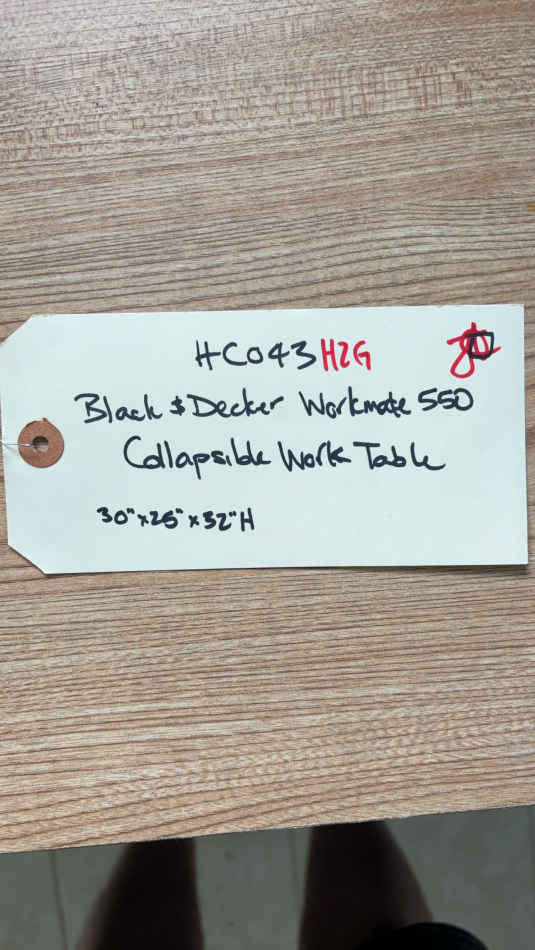 HC043 HZG
Black & Decker Workmate 550
Collapsible Work Table
30" x 26" x 32" H